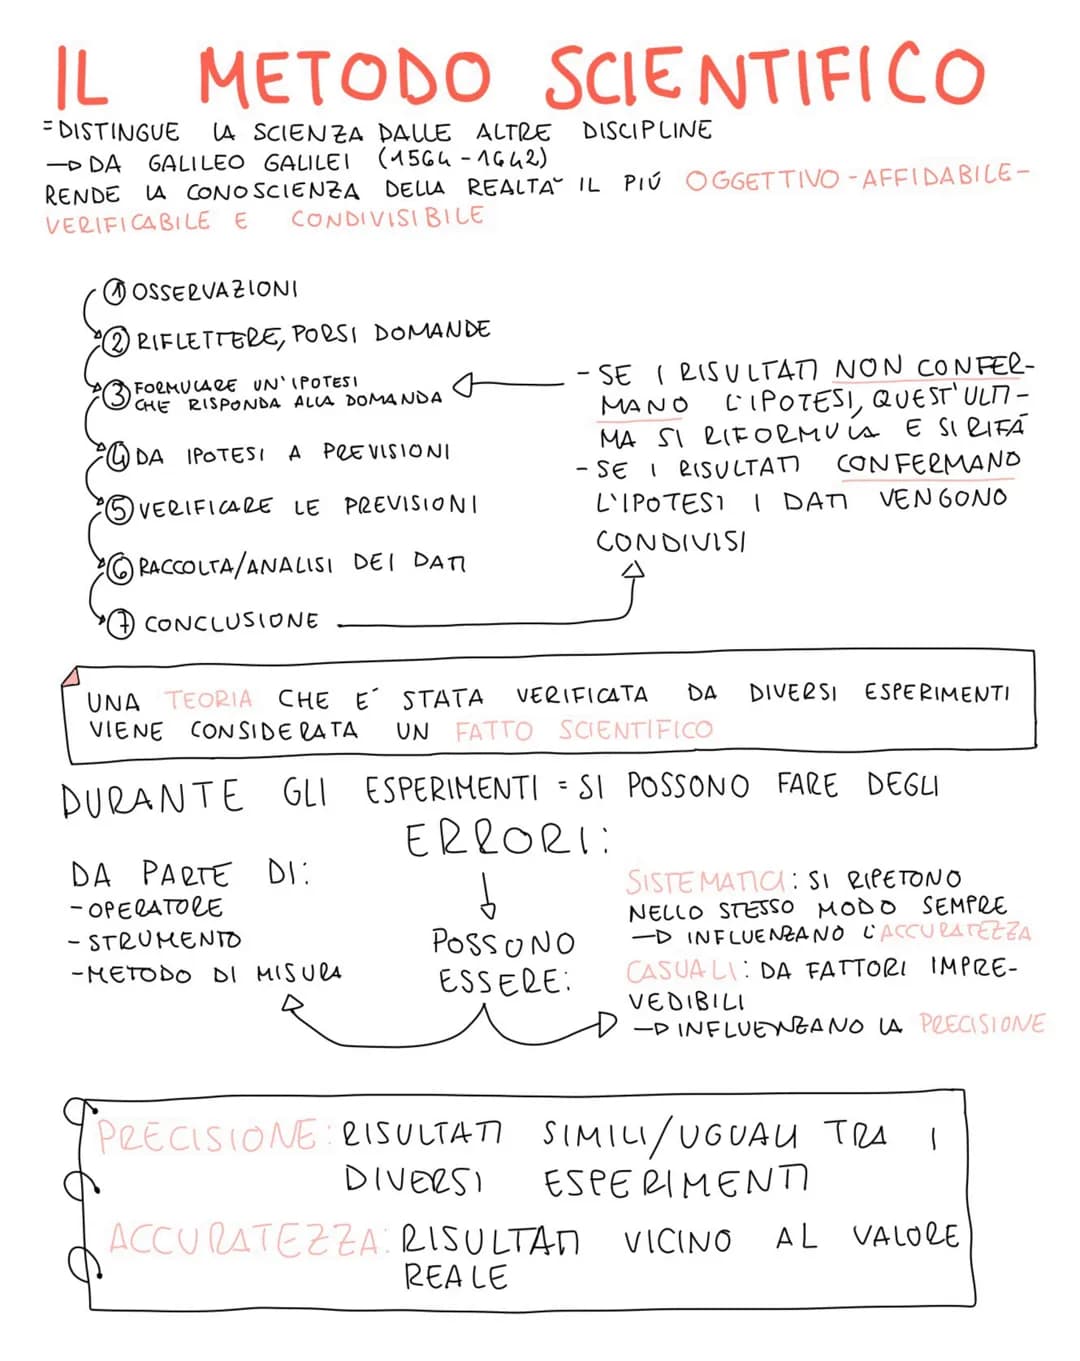 IL METODO SCIENTIFICO
= DISTINGUE LA SCIENZA DALLE ALTRE DISCIPLINE
→ DA GALILEO GALILEI (1564 - 1642)
RENDE LA CONOSCIENZA DELLA REALTA` IL PIÚ OGGETTIVO - AFFIDABILE -
VERIFICABILE E CONDIVISIBILE
① OSSERVAZIONI
② RIFLETTERE, PORSI DOMANDE
③ FORMULARE UN' IPOTESI
CHE RISPONDA ALLA DOMANDA
④ DA IPOTESI A PREVISIONI
⑤ VERIFICARE LE PREVISIONI
⑥ RACCOLTA/ANALISI DEI DATI
⑦ CONCLUSIONE
- SE I RISULTATI NON CONFER-
MANO L'IPOTESI, QUEST'ULTI-
MA SI RIFORMULA E SI RIFÀ
- SE I RISULTATI CONFERMANO
L'IPOTESI I DATI VENGONO
CONDIVISI
UNA TEORIA CHE E´ STATA VERIFICATA DA DIVERSI ESPERIMENTI
VIENE CONSIDERATA UN FATTO SCIENTIFICO
DURANTE GLI ESPERIMENTI = SI POSSONO FARE DEGLI
ERRORI:
DA PARTE DI:
- OPERATORE
- STRUMENTO
- METODO DI MISURA
POSSONO
ESSERE:
SISTEMATICI: SI RIPETONO
NELLO STESSO MODO SEMPRE
→ INFLUENZANO L'ACCURATEZZA
CASUALI: DA FATTORI IMPRE-
VEDIBILI
→ INFLUENZANO LA PRECISIONE
PRECISIONE: RISULTATI SIMILI/UGUALI TRA I
DIVERSI ESPERIMENTI
ACCURATEZZA: RISULTATI VICINO AL VALORE
REALE